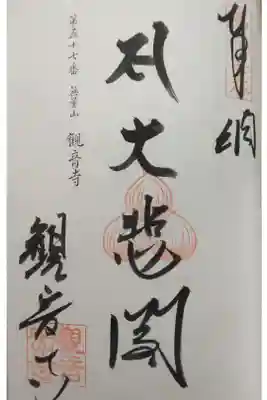 奉納
大悲閣
第五十七番 無量山 観音寺
観音寺